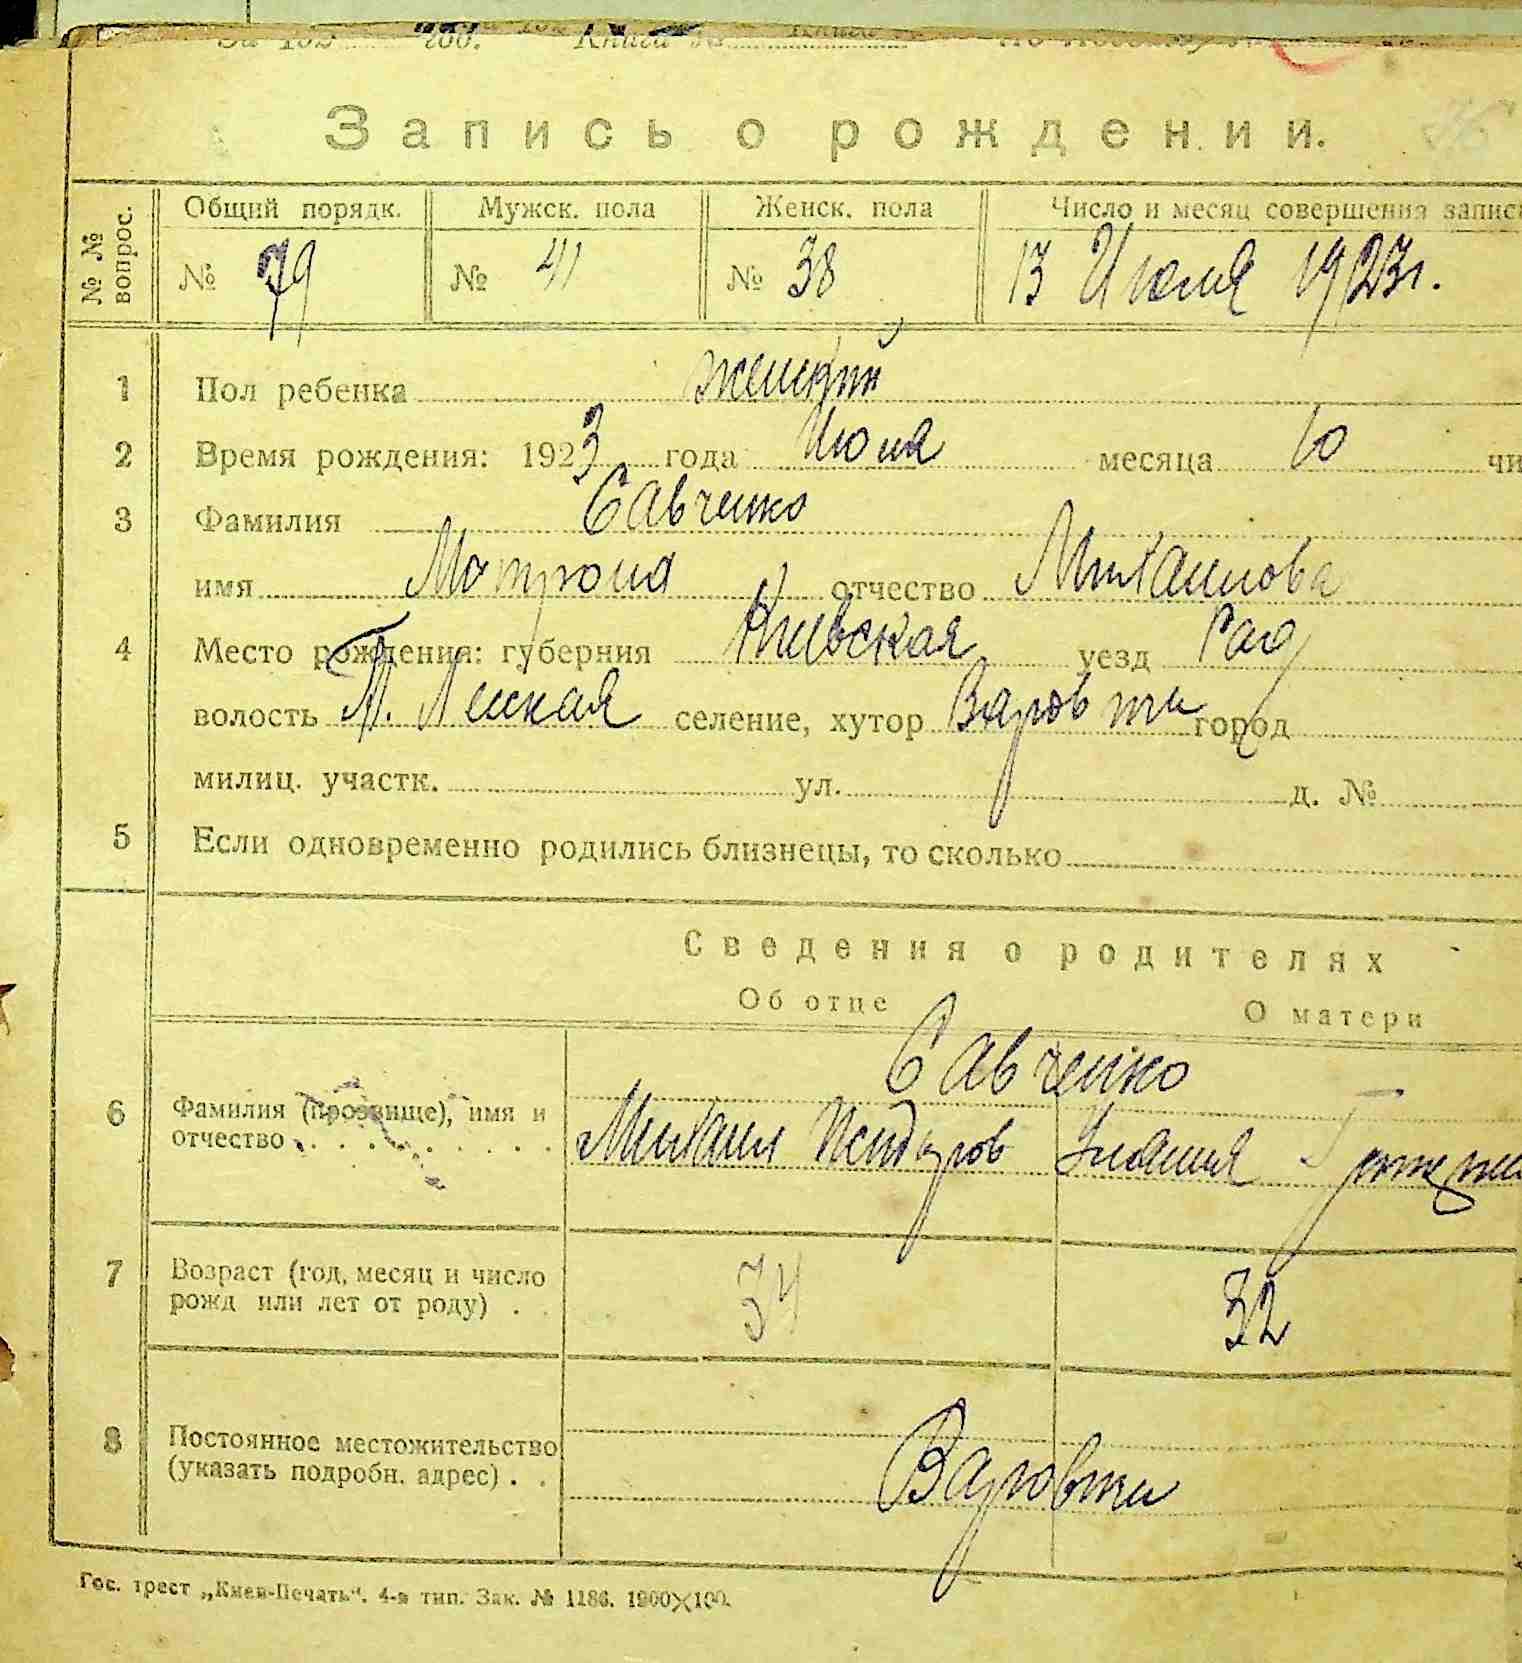 Запись о рождении.
№ № вопрос.
Общий порядк. Мужск. пола Женск. пола Число и месяц совершения запис
№ 79 № 41 № 38 13 Июля 1923 г.
1 Пол ребенка женский
2 Время рождения: 1923 года Июля месяца 10 чи
3 Фамилия Савченко
имя Матрона отчество Михаилова
4 Место рождения: губерния Киевская уезд Рад
волость селение, хутор Варовичи город
милиц. участк. ул. д. №
5 Если одновременно родились близнецы, то сколько
Сведения о родителях
Об отце О матери
Савченко
6 Фамилия (прозвище), имя и
отчество Михаил Улиания
7 Возраст (год, месяц и число
рожд или лет от роду) . . 34 32
8 Постоянное местожительство
(указать подробн. адрес) . . Варовичи
Гос. трест „Киев-Печать“. 4-я тип. Зак. № 1186. 1900×100.